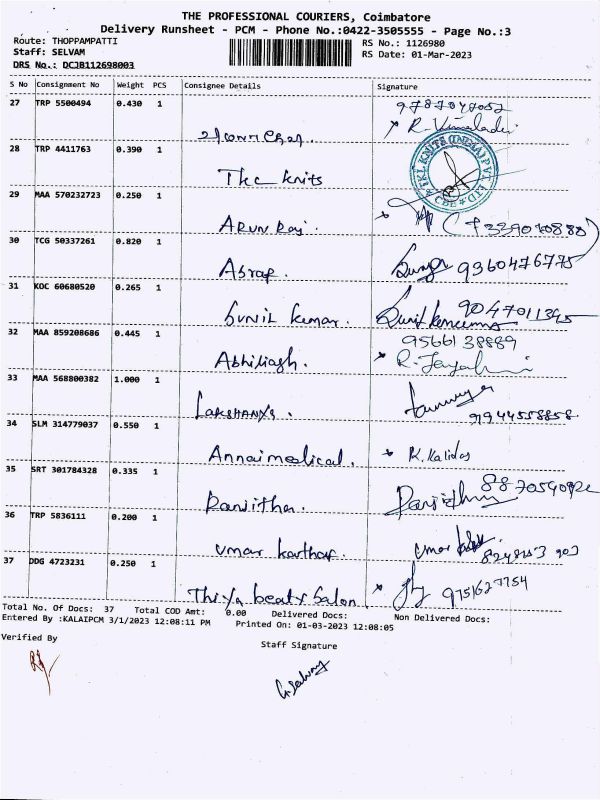 THE PROFESSIONAL COURIERS, Coimbatore
Delivery Runsheet - PCM - Phone No.:0422-3505555 - Page No.:3
Route: THOPPAMPATTI
RS No.: 1126980
Staff: SELVAM
RS Date: 01-Mar-2023
DRS No.: DCJB112698003
S No Consignment No Weight PCS Consignee Details Signature
27 TRP 5500494 0.430 1
9787047052
28 TRP 4411763 0.390 1
Tkc knits
TKL KNITS (INDIA) PVT. LTD CBE
29 MAA 570232723 0.250 1
ARUN Raj.
30 TCG 50337261 0.820 1
Asraf.
9360476775
31 KOC 60680520 0.265 1
Sunil kumar.
9047011395
32 MAA 859208686 0.445 1
9566138889
33 MAA 568800382 1.000 1
LAKSHANYA.
9944558858
34 SLM 314779037 0.550 1
Annai medical.
K. Kalidas
35 SRT 301784328 0.335 1
Ranjitha.
36 TRP 5836111 0.200 1
umar
37 DDG 4723231 0.250 1
Thiya beaty Salon.
9751627754
Total No. Of Docs: 37 Total COD Amt: 0.00 Delivered Docs: Non Delivered Docs:
Entered By :KALAIPCM 3/1/2023 12:08:11 PM Printed On: 01-03-2023 12:08:05
Verified By
Staff Signature